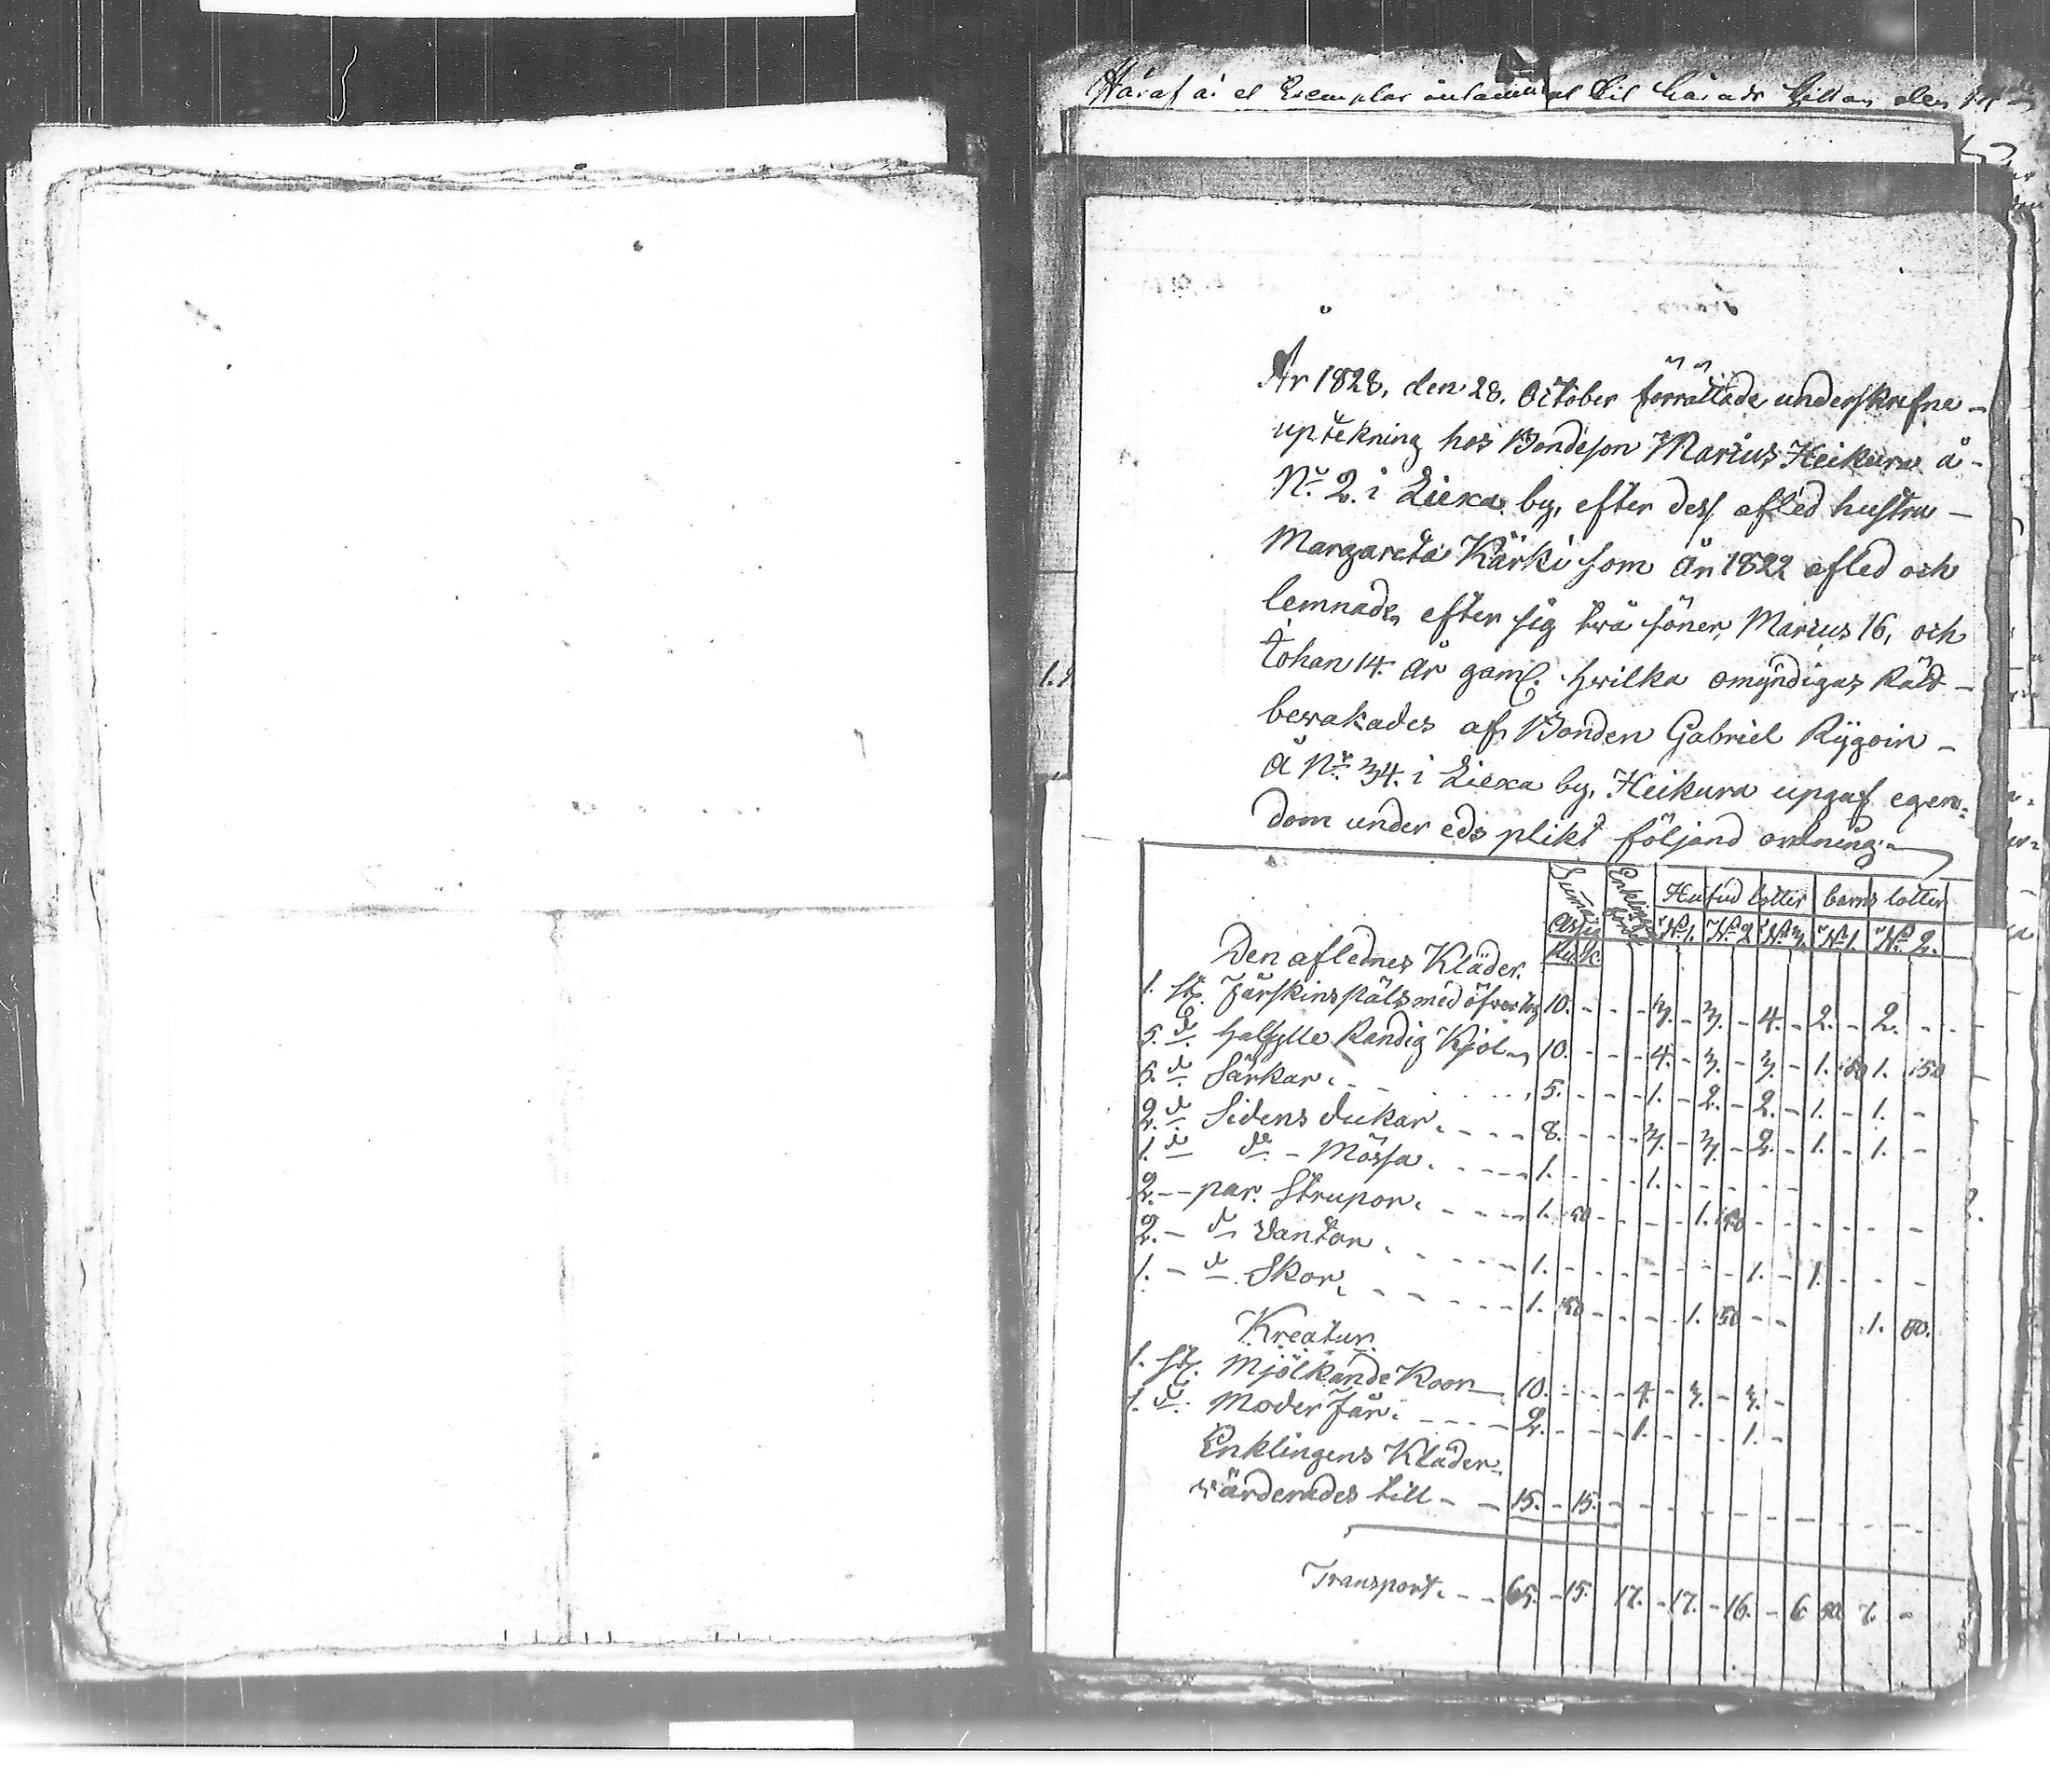 Häraf är et Exemplar inlämnat til
År 1828, den 28. October förrättade underskrefne
uptekning hos Bondeson Marius Heikura å
No 2. i Liexa by, efter dess afled hustru
Margareta Kärki som År 1822 afled och
lemnade efter sig två söner, Marius 16, och
Johan 14. år gaml. hwilka omyndigas Rätt
bewakades af Bonden Gabriel Rygoin
å No 34. i Liexa by, Heikura upgaf egen=
dom under eds plikt följand ordning.
Suma Enklings Hufud lotter barns lotter
Assig No 1. No 2 No 3. No 1. No 2.
Ru. K.
Den aflednes Kläder.
1. st. Fårskins päls med öfver tyg 10. - - - 3. - 3. - 4. - 2. - 2. - -
5. d. halfylle Randig Kjol 10. - - - 4. - 3. - 3. - 1. 50 1. 50
5. d. Särkar. - - 5. - - - 1. - 2. - 2. - 1. - 1. -
2. d. Sidens dukar. - - - - 8. - - - 3. - 3. - 2. - 1. - 1. -
1. d do - Mössa. - - - - 1. - - - 1. - - - - -
2. - - par. Strupor. - - - - 1. 50 - - - - 1. 50 - - - - -
2. - d vantar. - - - - 1. - - - - - - - 1. - 1. - - -
1. - d. Skor, - - - - - 1. 50 - - - - 1. 50 - - 1. 50.
Kreatur
1. st. Mjölkande Koor 10. - - - 4. - 3. - 3. -
1. d. Moder Får. - - - - 2. - - - 1. - - - 1. -
Enklingens Kläder
wärderades till - - 15. - 15. - - - - - - - - -
Transport. - - 65. - 15. 17. - 17. - 16. - 6 50 7. -